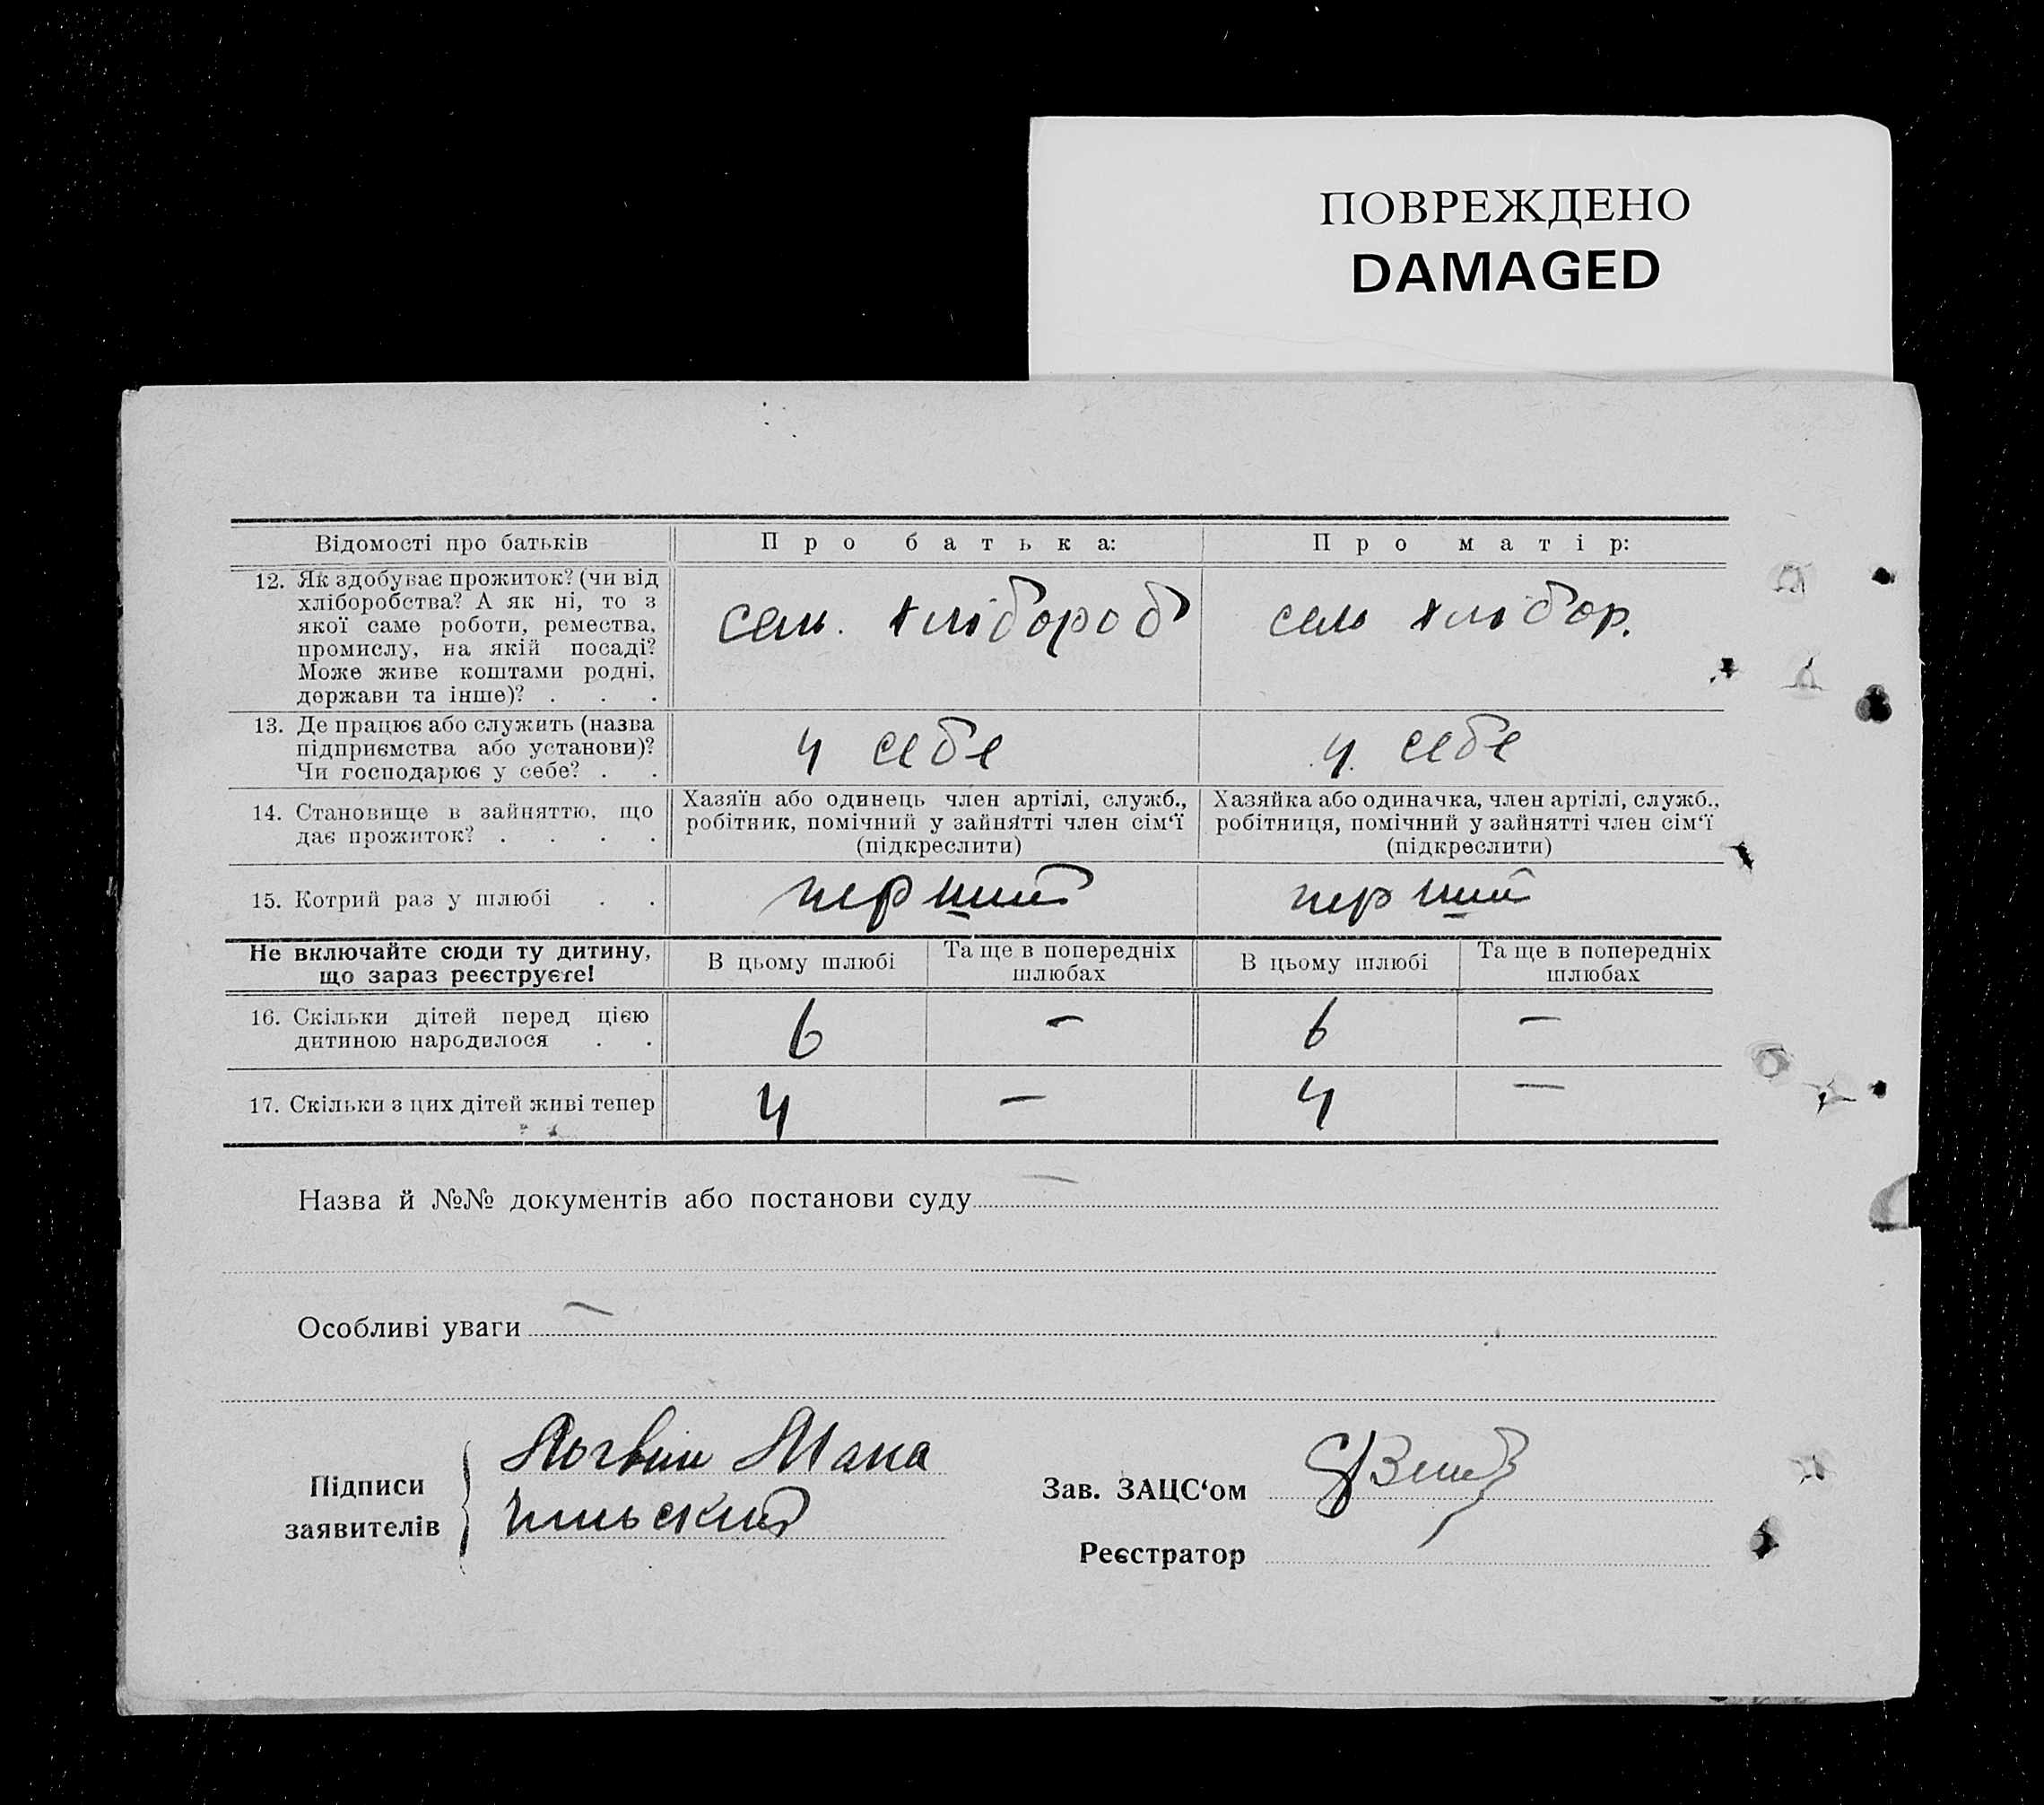 ПОВРЕЖДЕНО
DAMAGED
Відомості про батьків
Про батька:
Про матір:
12. Як здобуває прожиток? (чи від
хліборобства? А як ні, то з
якої саме роботи, ремества,
промислу, на якій посаді?
Може живе коштами родні,
держави та інше)? . . .
сель. хлібороб
сель хлібор.
13. Де працює або служить (назва
підприємства або установи)?
Чи господарює у себе? . .
у себе
у себе
14. Становище в зайняттю, що
дає прожиток? . . . .
Хазяїн або одинець член артілі, служб.,
робітник, помічний у зайнятті член сім‘ї
(підкреслити)
Хазяйка або одиначка, член артілі, служб.,
робітниця, помічний у зайнятті член сім‘ї
(підкреслити)
15. Котрий раз у шлюбі . .
перший
перший
Не включайте сюди ту дитину,
що зараз реєструєте!
В цьому шлюбі
Та ще в попередніх
шлюбах
В цьому шлюбі
Та ще в попередніх
шлюбах
16. Скільки дітей перед цією
дитиною народилося . .
6 — 6 —
17. Скільки з цих дітей живі тепер
4 — 4 —
Назва й №№ документів або постанови суду —
Особливі уваги —
Підписи
заявителів
Логвин Мана
пильский
Зав. ЗАЦС‘ом
Реєстратор